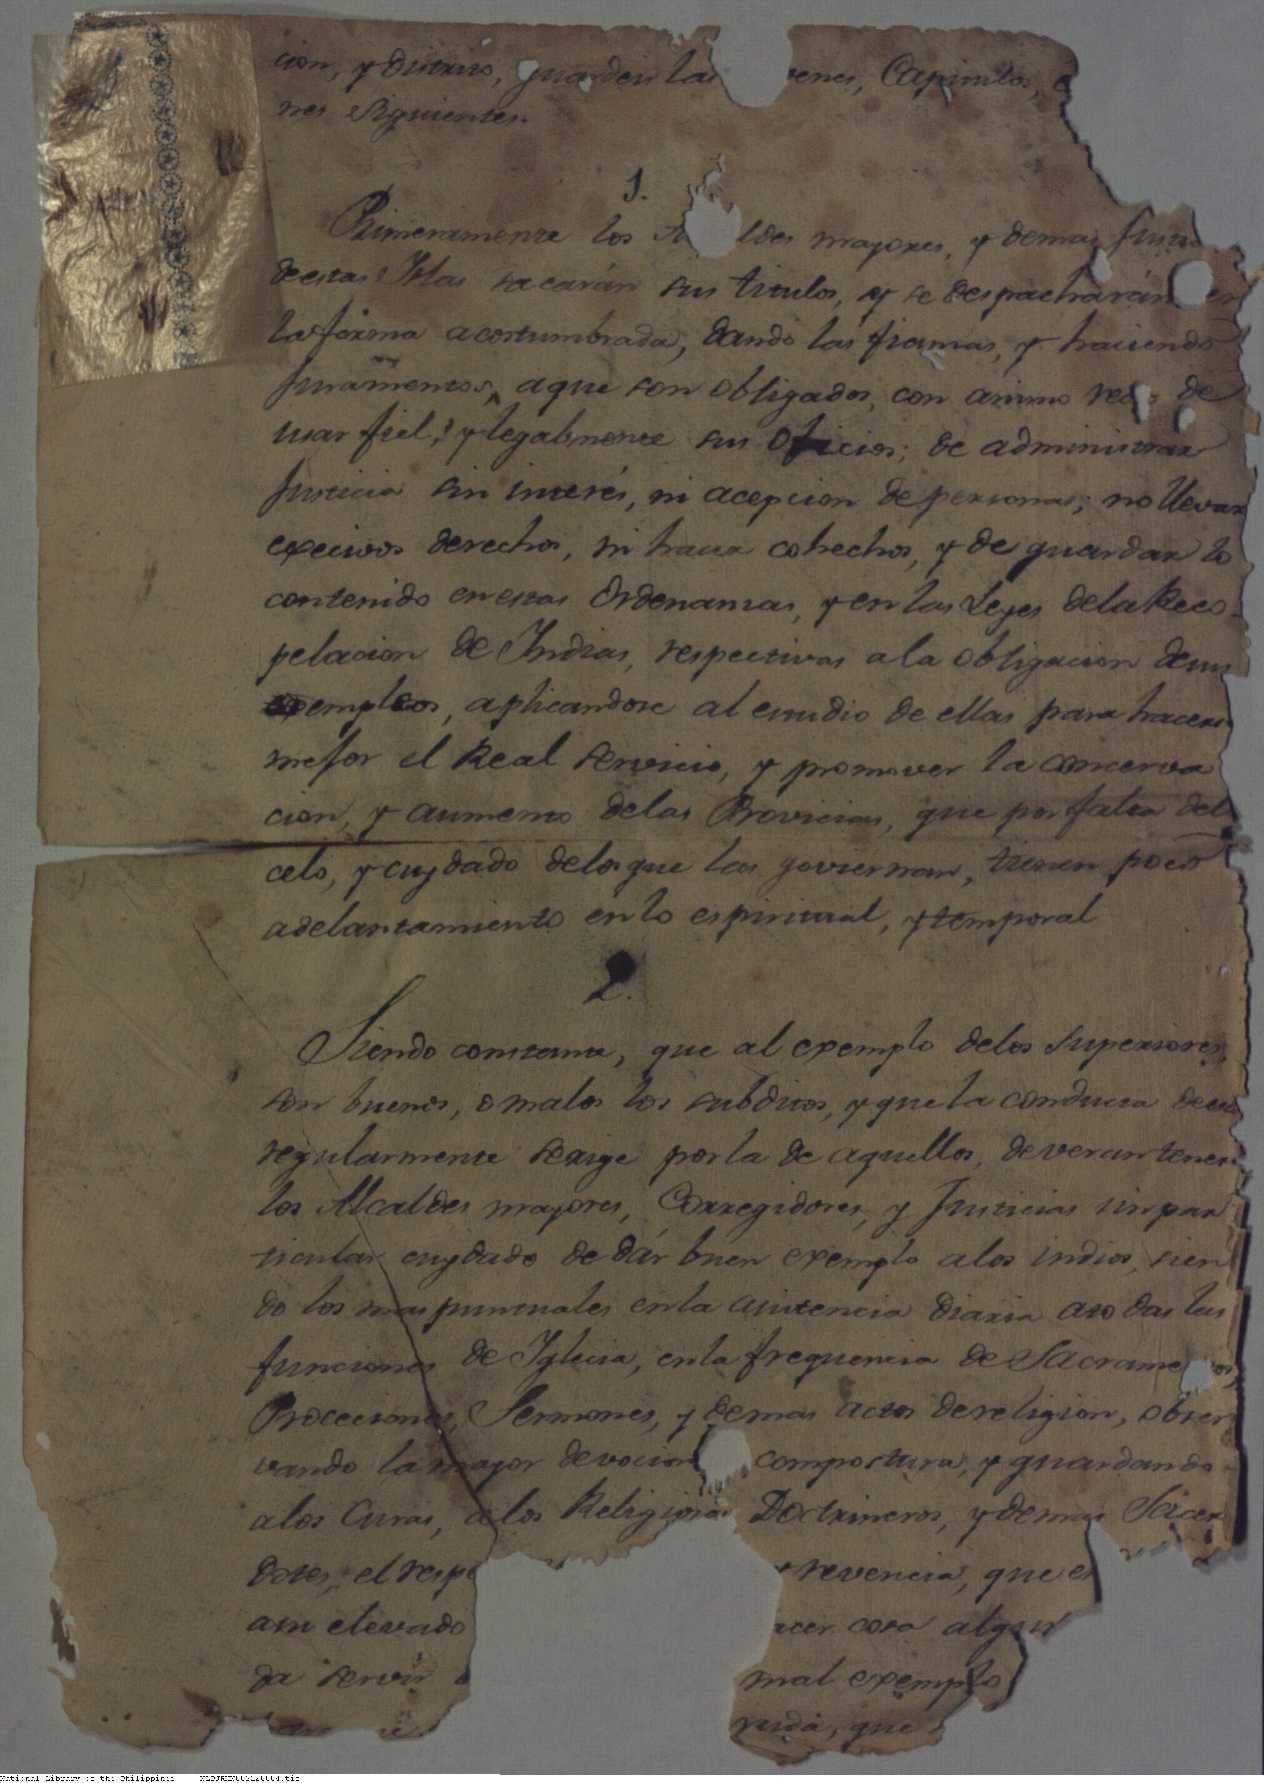 cion, y distrito, guarden las enes, Capitulos,
nes siguientes.
1.
Primeramente los A ldes mayores, y demas Justi
de estas Islas sacarán sus titulos, y se despacharán en
la forma acostumbrada, dando las fianzas, y haciendo
Juramentos, a que son obligados, con animo rec o de
usar fiel, y legalmente sus oficios; de administrar
Justicia sin interés, ni acepcion de personas; no llevar
excesivos derechos, ni hacer cohechos, y de guardar lo
contenido en estas Ordenanzas, y en las Leyes dela Reco-
pelacion de Indias, respectivas ala obligacion de sus
empleos, aplicandose al estudio de ellas para hacer
mejor el Real servicio, y promover la conserva
cion, y aumento delas Provicias, que por falta del
celo, y cuydado delos que las goviernan, tienen poco
adelantamiento en lo espiritual, y temporal
2.
Siendo constante, que al exemplo delos superiores,
son buenos, o malos los subditos, y que la conducta de estos
regularmente se rige por la de aquellos, deveran tener
los Alcaldes mayores, Corregidores, y Justicias un par
ticular cuydado de dár buen exemplo a los indios, sien
do los mas puntuales en la asistencia diaria a todas las
funciones de Iglecia, en la frequencia de Sacrame os,
Proceciones, Sermones, y demas actos de religion, obser
vando la mayor devocion compostura, y guardando
a los Curas, a los Religiosos Doctrineros, y demas Sacer
dotes, el respe y revencia, que es
a su elevado acer cosa algun
da servir mal exemplo
que